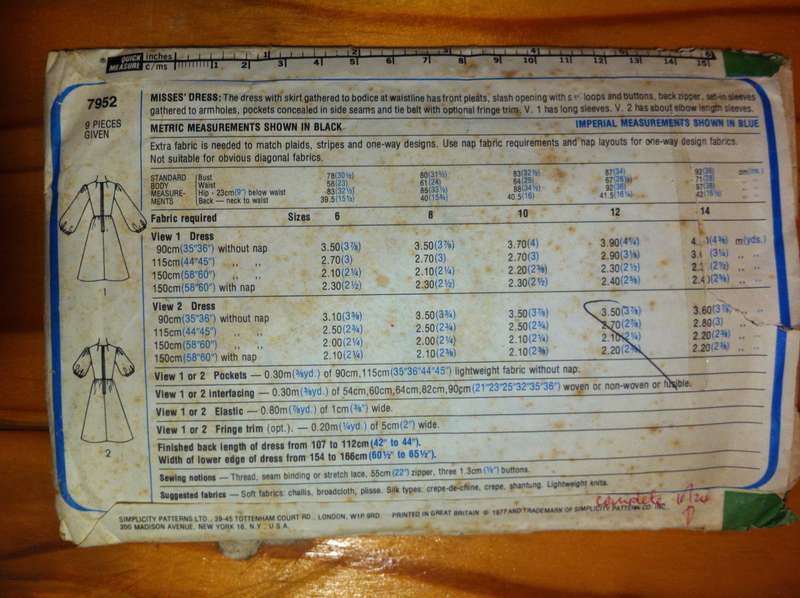 QUICK MEASURE inches 1 2 3 4 5 6
c/ms 1 2 3 4 5 6 7 8 9 10 11 12 13 14 15
7952
9 PIECES
GIVEN
MISSES' DRESS: The dress with skirt gathered to bodice at waistline has front pleats, slash opening with loops and buttons, back zipper, set-in sleeves
gathered to armholes, pockets concealed in side seams and tie belt with optional fringe trim. V. 1 has long sleeves. V. 2 has about elbow length sleeves.
METRIC MEASUREMENTS SHOWN IN BLACK IMPERIAL MEASUREMENTS SHOWN IN BLUE
Extra fabric is needed to match plaids, stripes and one-way designs. Use nap fabric requirements and nap layouts for one-way design fabrics.
Not suitable for obvious diagonal fabrics.
STANDARD Bust 78(30½) 80(31½) 83(32½) 87(34) 92(36) cm(ins.)
BODY Waist 58(23) 61(24) 64(25) 67(26½) 71(28) ,, ,,
MEASURE- Hip - 23cm(9") below waist 83(32½) 85(33½) 88(34½) 92(36) 97(38) ,, ,,
MENTS Back — neck to waist 39.5(15½) 40(15¾) 40.5(16) 41.5(16¼) 42(16½) ,, ,,
Fabric required Sizes 6 8 10 12 14
View 1 Dress
90cm(35"36") without nap 3.50(3⅞) 3.50(3⅞) 3.70(4) 3.90(4¼) (4⅜) m(yds.)
115cm(44"45") ,, ,, 2.70(3) 2.70(3) 2.70(3) 2.90(3⅛) (3¼) ,, ,,
150cm(58"60") ,, ,, 2.10(2¼) 2.10(2¼) 2.20(2⅜) 2.30(2½) (2½) ,, ,,
150cm(58"60") with nap 2.30(2½) 2.30(2½) 2.30(2½) 2.40(2⅝) (2⅝) ,, ,,
View 2 Dress
90cm(35"36") without nap 3.10(3⅜) 3.50(3¾) 3.50(3⅞) 3.50(3⅞) 3.60 ,, ,,
115cm(44"45") ,, ,, 2.50(2¾) 2.50(2¾) 2.50(2¾) 2.70(2⅞) 2.80(3) ,, ,,
150cm(58"60") ,, ,, 2.00(2¼) 2.00(2¼) 2.10(2¼) 2.10(2¼) 2.20(2⅜) ,, ,,
150cm(58"60") with nap 2.10(2¼) 2.10(2⅜) 2.10(2⅜) 2.20(2⅜) 2.20(2⅜) ,, ,,
View 1 or 2 Pockets — 0.30m(⅜yd.) of 90cm,115cm(35"36"44"45") lightweight fabric without nap.
View 1 or 2 Interfacing — 0.30m(⅜yd.) of 54cm,60cm,64cm,82cm,90cm(21"23"25"32"35"36") woven or non-woven or fusible.
View 1 or 2 Elastic — 0.80m(⅞yd.) of 1cm(⅜") wide.
View 1 or 2 Fringe trim (opt.). — 0.20m(¼yd.) of 5cm(2") wide.
Finished back length of dress from 107 to 112cm(42" to 44").
Width of lower edge of dress from 154 to 166cm(60½" to 65½").
Sewing notions — Thread, seam binding or stretch lace, 55cm(22") zipper, three 1.3cm(½") buttons.
Suggested fabrics — Soft fabrics: challis, broadcloth, plisse. Silk types: crepe-de-chine, crepe, shantung. Lightweight knits.
1
2
complete
SIMPLICITY PATTERNS LTD., 39-45 TOTTENHAM COURT RD., LONDON, W1P 9RD. PRINTED IN GREAT BRITAIN © 1977 AND TRADEMARK OF SIMPLICITY PATTERN CO. INC.
200 MADISON AVENUE, NEW YORK 16, N.Y., U.S.A.